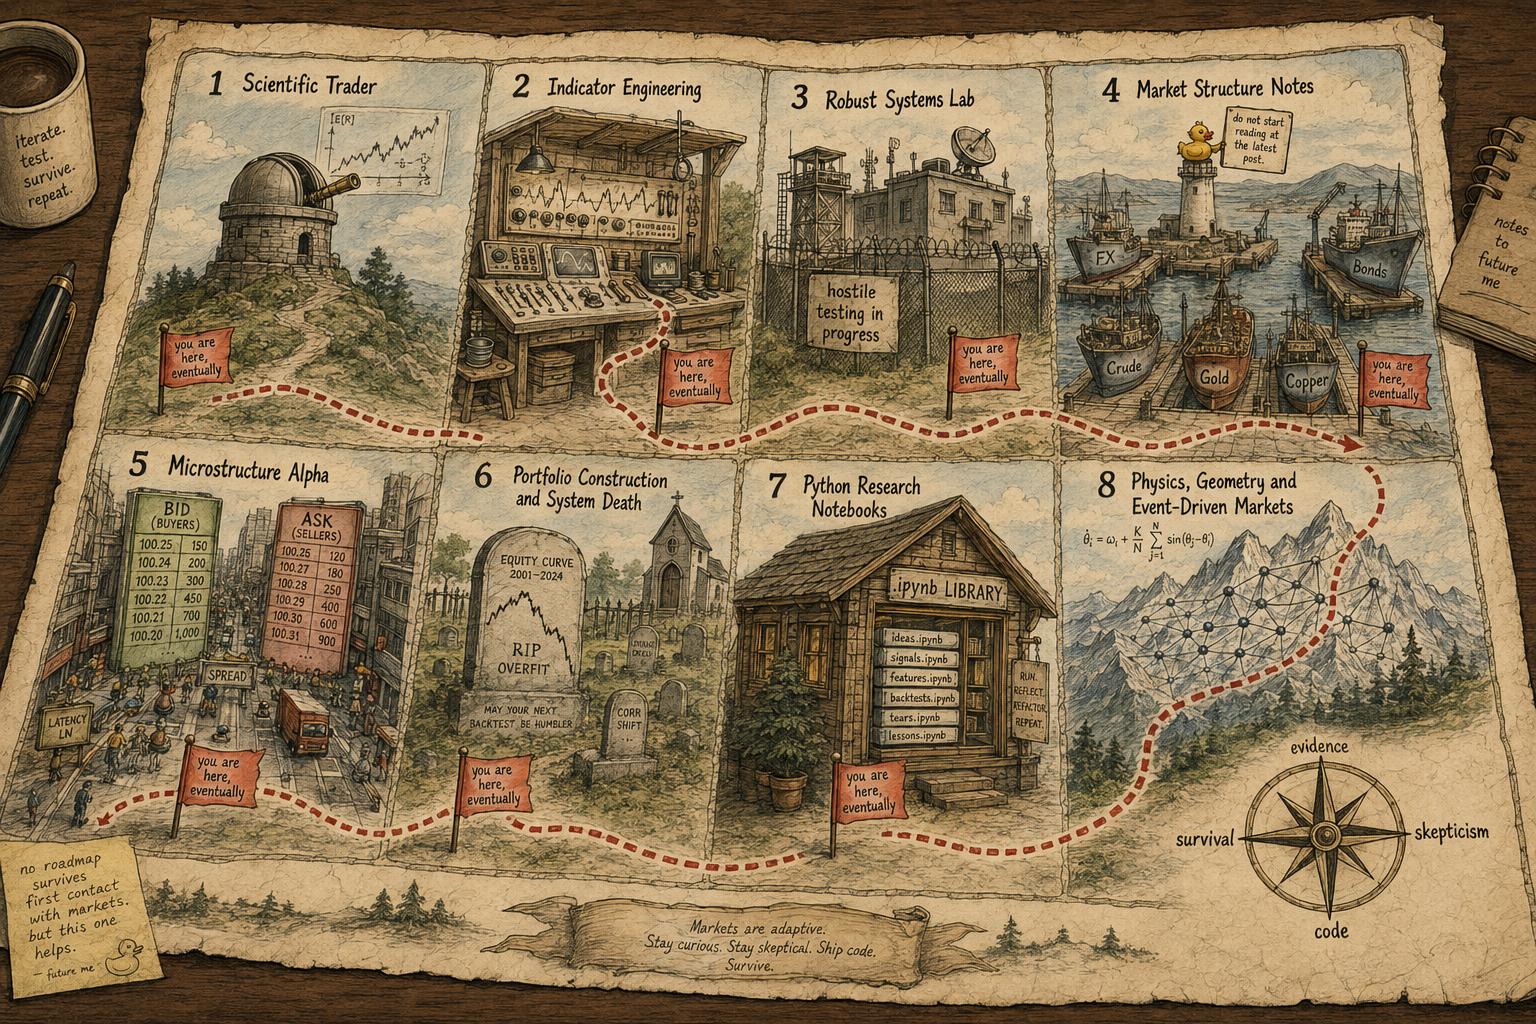 iterate.
test.
survive.
repeat.
1 Scientific Trader
[E[R]
you are
here,
eventually
2 Indicator Engineering
you are
here,
eventually
3 Robust Systems Lab
hostile
testing in
progress
you are
here,
eventually
4 Market Structure Notes
do not start
reading at
the latest
post.
FX
Bonds
Crude
Gold
Copper
you are
here,
eventually
notes
to
future
me
5 Microstructure Alpha
BID
(BUYERS)
100.25 150
100.24 200
100.23 300
100.22 450
100.21 700
100.20 1,000
...
ASK
(SELLERS)
100.25 120
100.27 180
100.28 250
100.29 400
100.30 600
100.31 900
...
SPREAD
LATENCY
LN
you are
here,
eventually
6 Portfolio Construction
and System Death
EQUITY CURVE
2001-2024
RIP
OVERFIT
MAY YOUR NEXT
BACKTEST BE HUMBLER
CORR
SHIFT
...
you are
here,
eventually
7 Python Research
Notebooks
.ipynb LIBRARY
ideas.ipynb
signals.ipynb
features.ipynb
backtests.ipynb
tears.ipynb
lessons.ipynb
RUN.
REFLECT.
REFACTOR.
REPEAT.
you are
here,
eventually
8 Physics, Geometry and
Event-Driven Markets
θ̇ᵢ = ωᵢ + K/N ∑ⱼ₌₁ᴺ sin(θⱼ-θᵢ)
evidence
survival
skepticism
code
no roadmap
survives
first contact
with markets.
but this one
helps.
— future me
Markets are adaptive.
Stay curious. Stay skeptical. Ship code.
Survive.